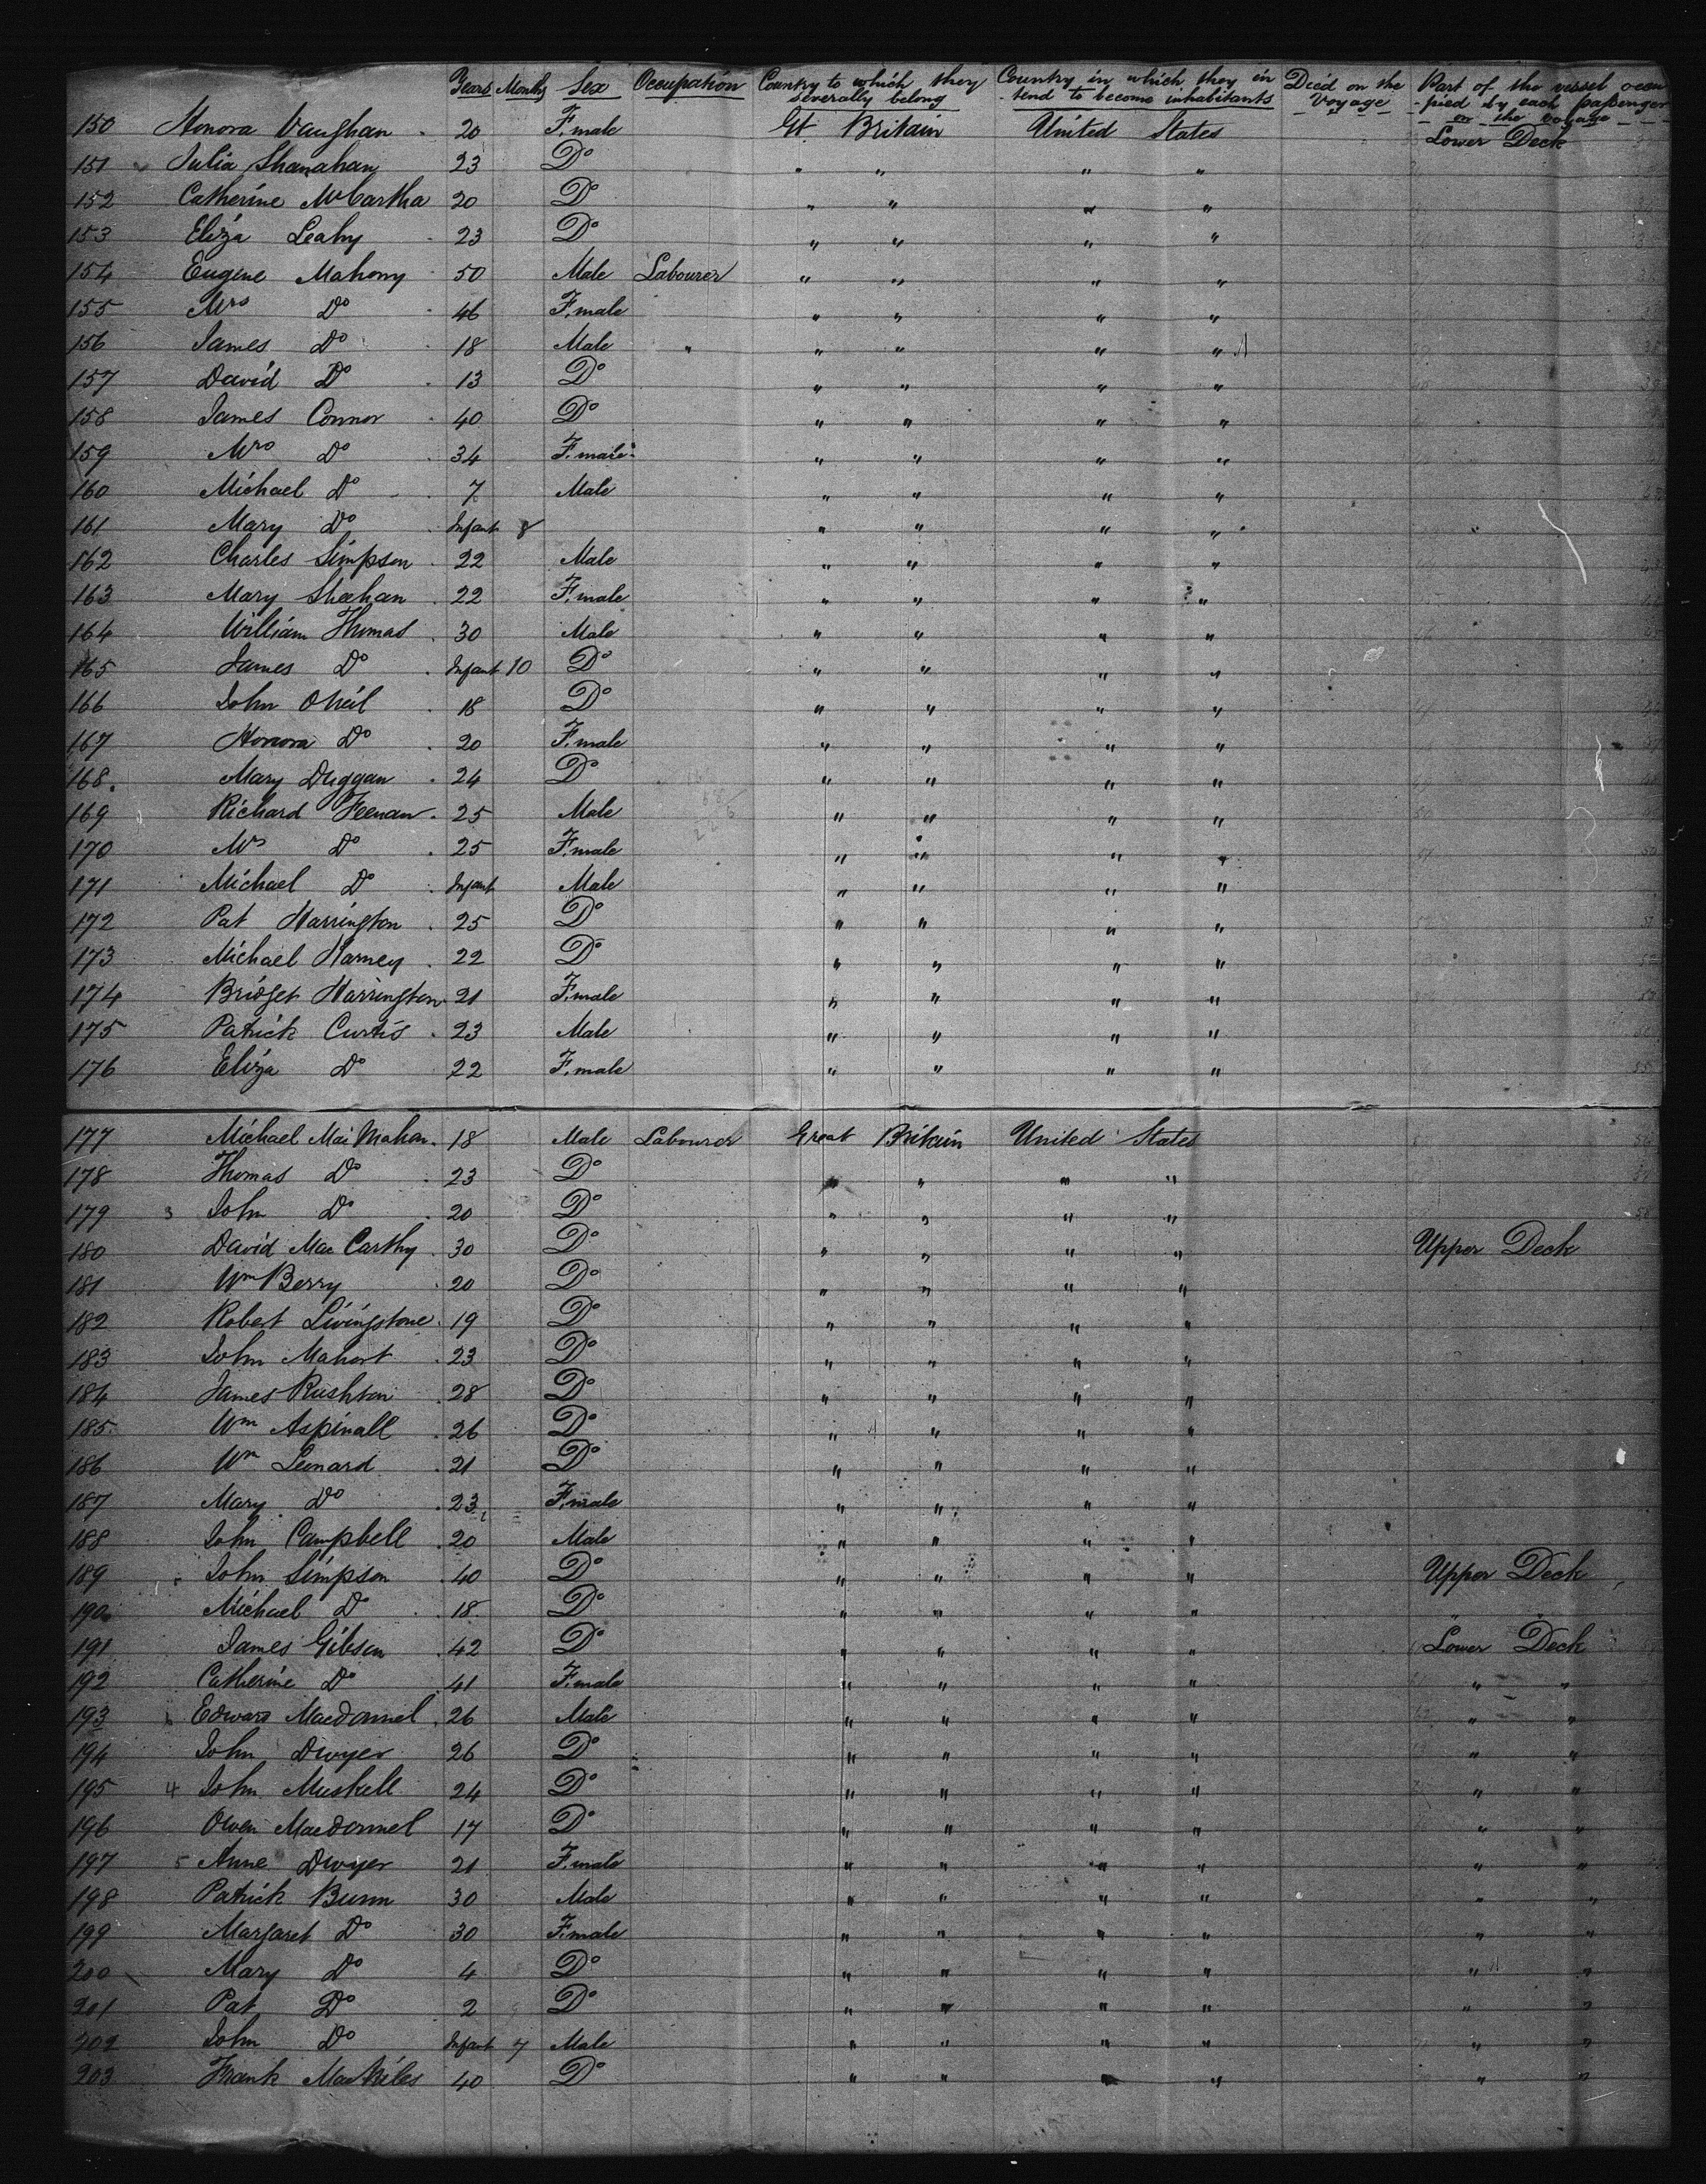 Years Months Sex Occupation Country to which they severally belong Country in which they intend to become inhabitants Died on the Voyage Part of the vessel occupied by each passenger on the voyage
150 Honora Vaughan 20 F.male Gt Britain United States Lower Deck
151 Julia Shanahan 23 Do " " " "
152 Catherine McCartha 20 Do " " " "
153 Eliza Leahy 23 Do " " " "
154 Eugene Mahony 50 Male Labourer " " " "
155 Mrs Do 46 F.male " " " "
156 James Do 18 Male " " " " "
157 David Do 13 Do " " " "
158 James Connor 40 Do " " " "
159 Mrs Do 34 F.male " " " "
160 Michael Do 7 Male " " " "
161 Mary Do Infant 8 " " " "
162 Charles Simpson 22 Male " " " "
163 Mary Sheehan 22 F.male " " " "
164 William Thomas 30 Male " " " "
165 James Do Infant 10 Do " " " "
166 John ONeil 18 Do " " " "
167 Honora Do 20 F.male " " " "
168 Mary Duggan 24 Do " " " "
169 Richard Feenan 25 Male " " " "
170 Mrs Do 25 F.male " " " "
171 Michael Do Infant Male " " " "
172 Pat Harrington 25 Do " " " "
173 Michael Harney 22 Do " " " "
174 Bridget Harrington 21 F.male " " " "
175 Patrick Curtis 23 Male " " " "
176 Eliza Do 22 F.male " " " "
177 Michael Mahon 18 Male Labourer Great Britain United States
178 Thomas Do 23 Do " " " "
179 3 John Do 20 Do " " " "
180 David Mac Carthy 30 Do " " " " Upper Deck
181 Wm Berry 20 Do " " " "
182 Robert Livingstone 19 Do " " " "
183 John Mahort 23 Do " " " "
184 James Rushton 28 Do " " " "
185 Wm Aspinall 26 Do " " " "
186 Wm Leonard 21 Do " " " "
187 Mary Do 23 F.male " " " "
188 John Campbell 20 Male " " " "
189 John Simpson 40 Do " " " " Upper Deck
190 Michael Do 18 Do " " " "
191 James Gibson 42 Do " " " " Lower Deck
192 Catherine Do 41 F.male " " " " " "
193 Edward Macdonnel 26 Male " " " " " "
194 John Dwyer 26 Do " " " " " "
195 4 John Muskell 24 Do " " " " " "
196 Owen Macdonnel 17 Do " " " " " "
197 5 Anne Dwyer 21 F.male " " " " " "
198 Patrick Bunn 30 Male " " " " " "
199 Margaret Do 30 F.male " " " " " "
200 Mary Do 4 Do " " " " " "
201 Pat Do 2 Do " " " " " "
202 John Do Infant 7 Male " " " " " "
203 Frank 40 Do " " " " " "